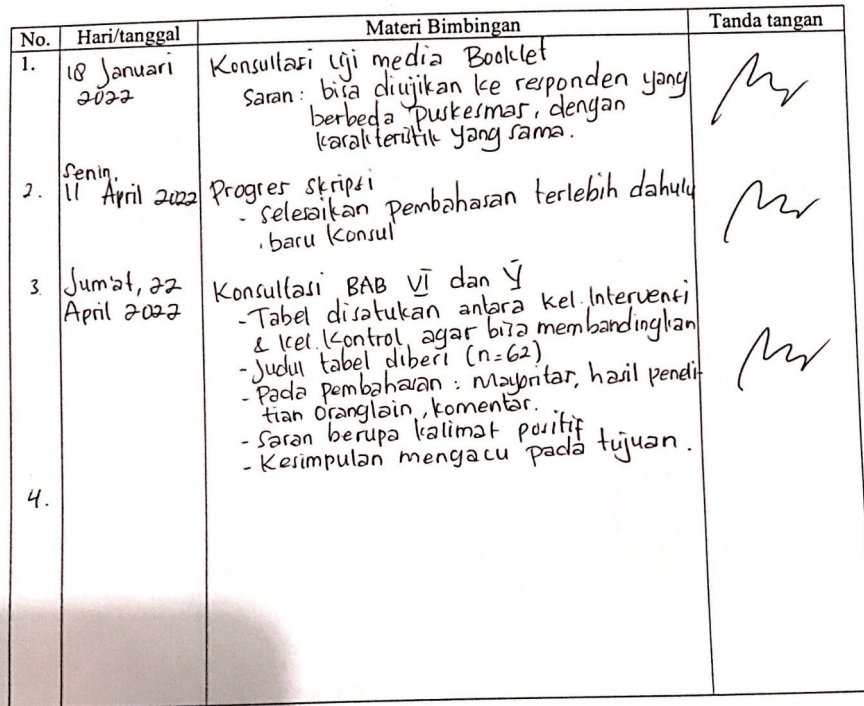 No. Hari/tanggal Materi Bimbingan Tanda tangan
1. 18 Januari 2022 Konsultasi uji media Booklet
Saran : bisa diujikan ke responden yang
berbeda puskesmas, dengan
karakteristik yang sama.
2. Senin, 11 April 2022 Progres skripsi
- selesaikan pembahasan terlebih dahulu
. baru konsul
3. Jum'at, 22 April 2022 Konsultasi BAB VI dan V
- Tabel disatukan antara kel. Intervensi
& kel. Kontrol, agar bisa membandingkan
- Judul tabel diberi (n=62)
- Pada pembahasan : Mayoritas, hasil peneli-
tian orang lain, komentar.
- Saran berupa kalimat positif
- Kesimpulan mengacu pada tujuan.
4.